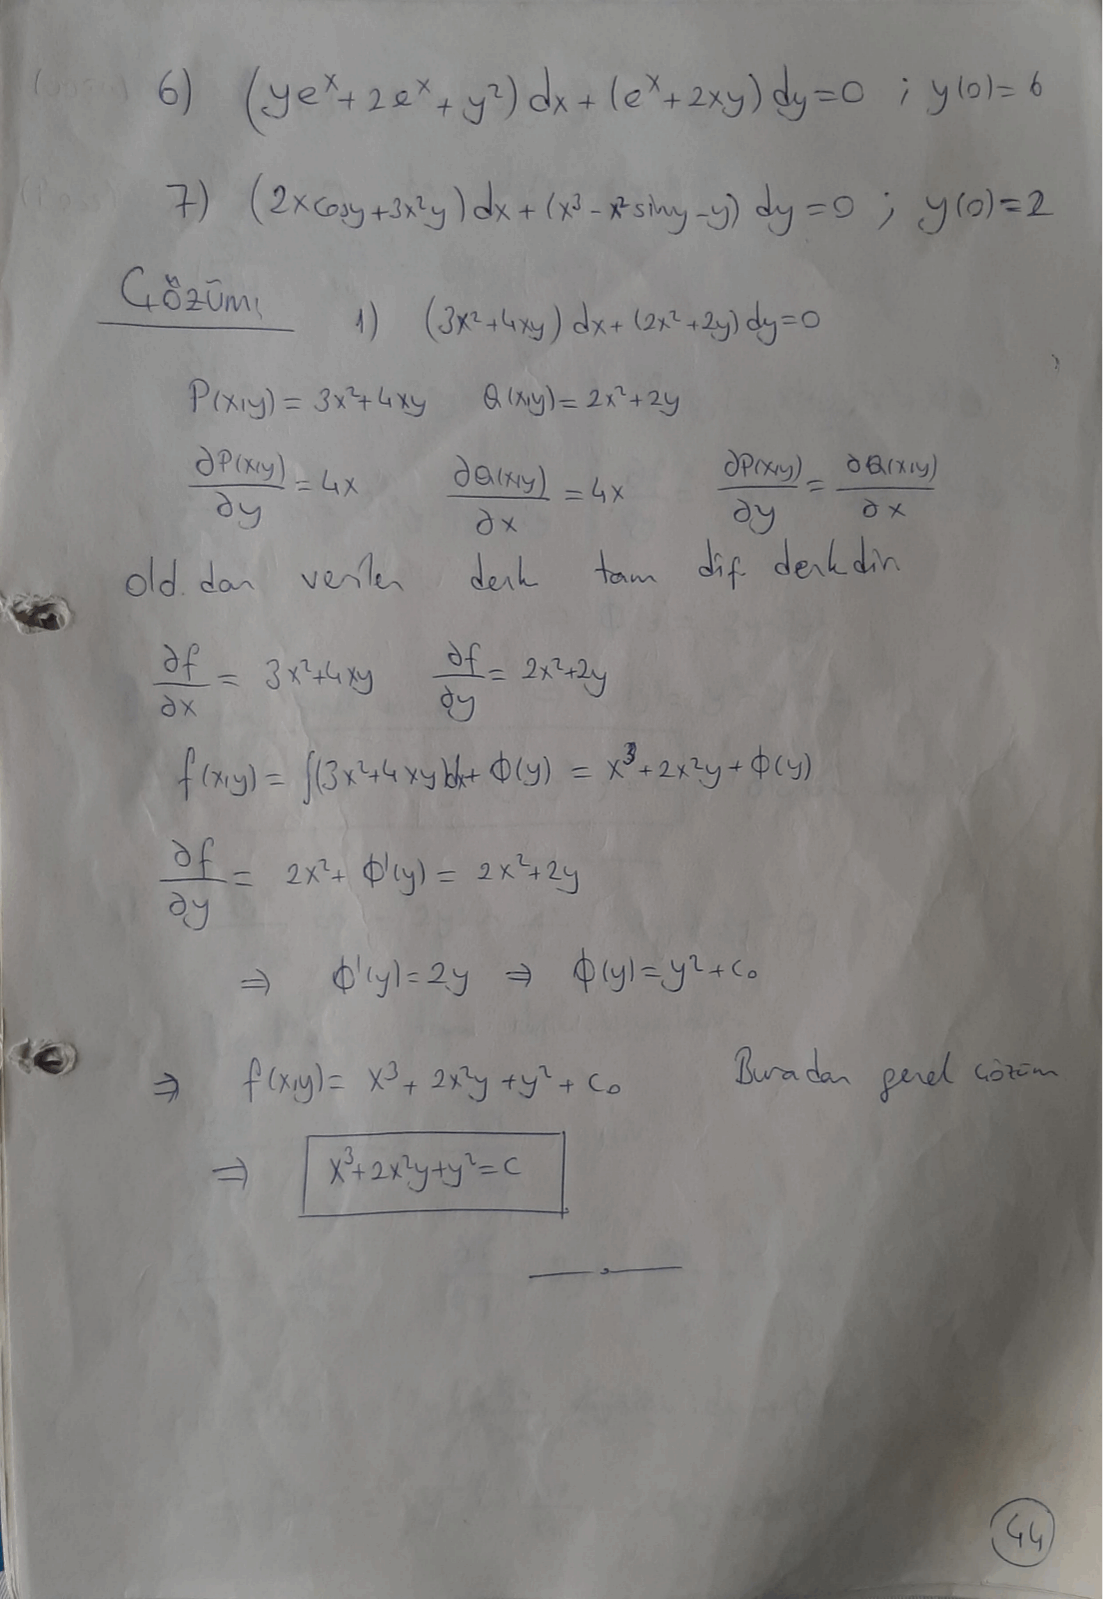 6) (ye^x + 2e^x + y²) dx + (e^x + 2xy) dy = 0 ; y(0) = 6
7) (2x cosy + 3x²y) dx + (x³ - x² siny - y) dy = 0 ; y(0) = 2
Çözüm: 1) (3x² + 4xy) dx + (2x² + 2y) dy = 0
P(x,y) = 3x² + 4xy Q(x,y) = 2x² + 2y
∂P(x,y)/∂y = 4x ∂Q(x,y)/∂x = 4x ∂P(x,y)/∂y = ∂Q(x,y)/∂x
old. dan verilen denk tam dif denkdir
∂f/∂x = 3x² + 4xy ∂f/∂y = 2x² + 2y
f(x,y) = ∫(3x² + 4xy)dx + φ(y) = x³ + 2x²y + φ(y)
∂f/∂y = 2x² + φ'(y) = 2x² + 2y
⇒ φ'(y) = 2y ⇒ φ(y) = y² + c₀
⇒ f(x,y) = x³ + 2x²y + y² + c₀ Buradan genel çözüm
⇒ x³ + 2x²y + y² = c
44